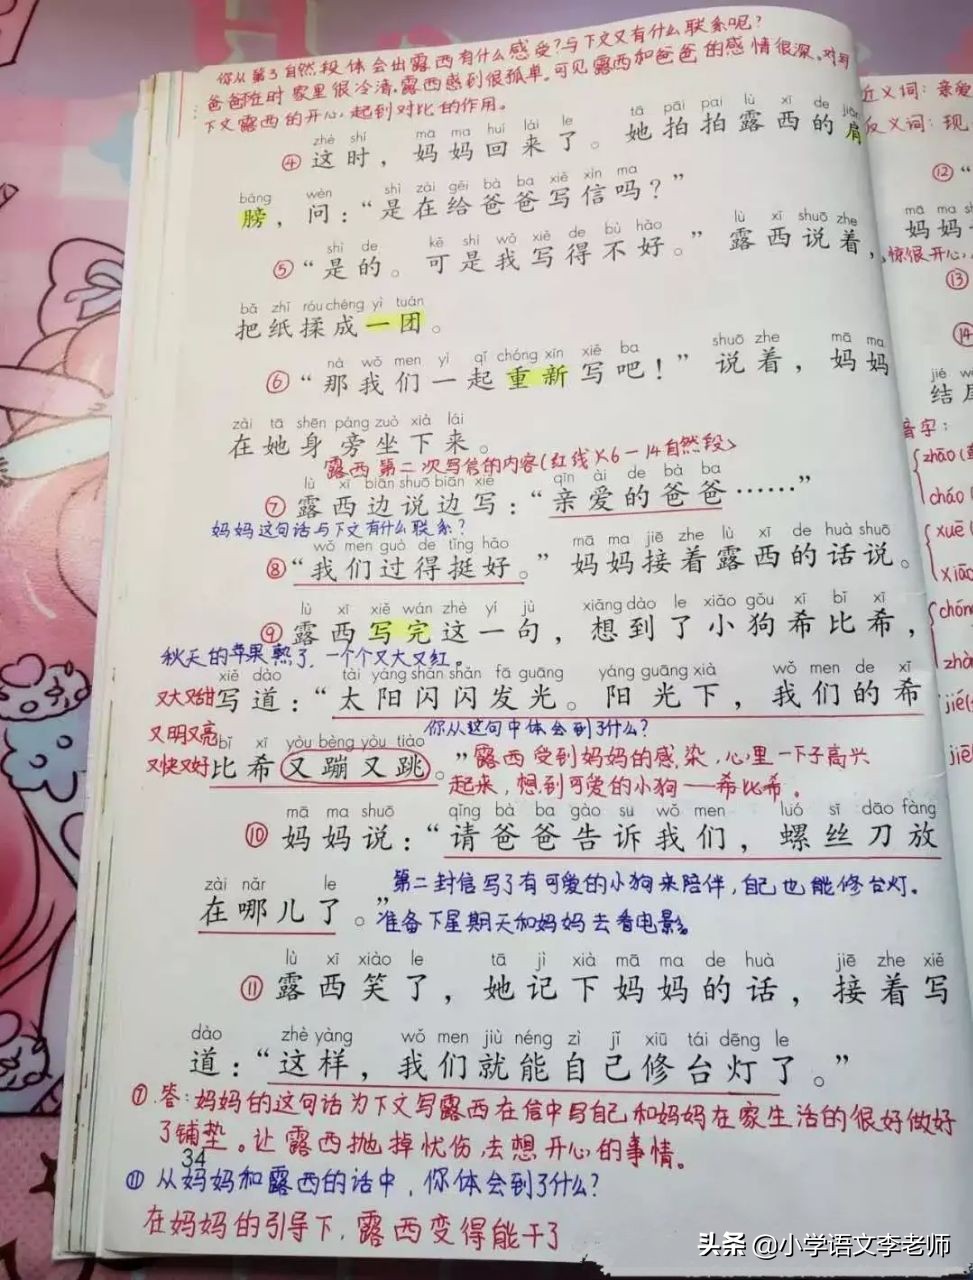 你从第3自然段体会出露西有什么感受?与下文又有什么联系呢?
爸爸在时家里很冷清,露西感到很孤单。可见露西和爸爸的感情很深。对写
下文露西的开心,起到对比的作用。
zhè shí mā ma huí lái le tā pāi pai lù xī de jiān
④这时,妈妈回来了。她拍拍露西的肩
bǎng wèn shì zài gěi bà ba xiě xìn ma
膀,问:“是在给爸爸写信吗?”
shì de kě shì wǒ xiě de bù hǎo lù xī shuō zhe
⑤“是的。可是我写得不好。”露西说着,
bǎ zhǐ róu chéng yì tuán
把纸揉成一团。
nà wǒ men yì qǐ chóng xīn xiě ba shuō zhe mā ma
⑥“那我们一起重新写吧!”说着,妈妈
zài tā shēn páng zuò xià lái
在她身旁坐下来。
露西第二次写信的内容(红线)<6-14自然段>
lù xī biān shuō biān xiě qīn ài de bà ba
⑦露西边说边写:“亲爱的爸爸……”
妈妈这句话与下文有什么联系?
wǒ men guò de tǐng hǎo mā ma jiē zhe lù xī de huà shuō
⑧“我们过得挺好。”妈妈接着露西的话说。
lù xī xiě wán zhè yí jù xiǎng dào le xiǎo gǒu xī bǐ xī
⑨露西写完这一句,想到了小狗希比希,
秋天的苹果熟了,一个个又大又红。
xiě dào tài yáng shǎn shǎn fā guāng yáng guāng xià wǒ men de xī
又大又甜 写道:“太阳闪闪发光。阳光下,我们的希
又明又亮 你从这句中体会到了什么?
bǐ xī yòu bèng yòu tiào
又快又好 比希又蹦又跳。”露西受到妈妈的感染,心里一下子高兴
起来,想到可爱的小狗——希比希。
mā ma shuō qǐng bà ba gào su wǒ men luó sī dāo fàng
⑩妈妈说:“请爸爸告诉我们,螺丝刀放
zài nǎr le
在哪儿了。”
第二封信写了有可爱的小狗来陪伴,自己也能修台灯。
准备下星期天和妈妈去看电影。
lù xī xiào le tā jì xià mā ma de huà jiē zhe xiě
⑪露西笑了,她记下妈妈的话,接着写
dào zhè yàng wǒ men jiù néng zì jǐ xiū tái dēng le
道:“这样,我们就能自己修台灯了。”
⑦.答:妈妈的这句话为下文写露西在信中写自己和妈妈在家生活的很好做好
了铺垫。让露西抛掉忧伤,去想开心的事情。
34
⑪从妈妈和露西的话中,你体会到了什么?
在妈妈的引导下,露西变得能干了
近义词:亲爱
反义词:现
⑫“
mā ma
妈妈
惊很开心,
⑬
⑭
jié
结尾
音字:
zhāo
cháo
xuē
xiāo
chóng
zhòng
头条 @小学语文李老师